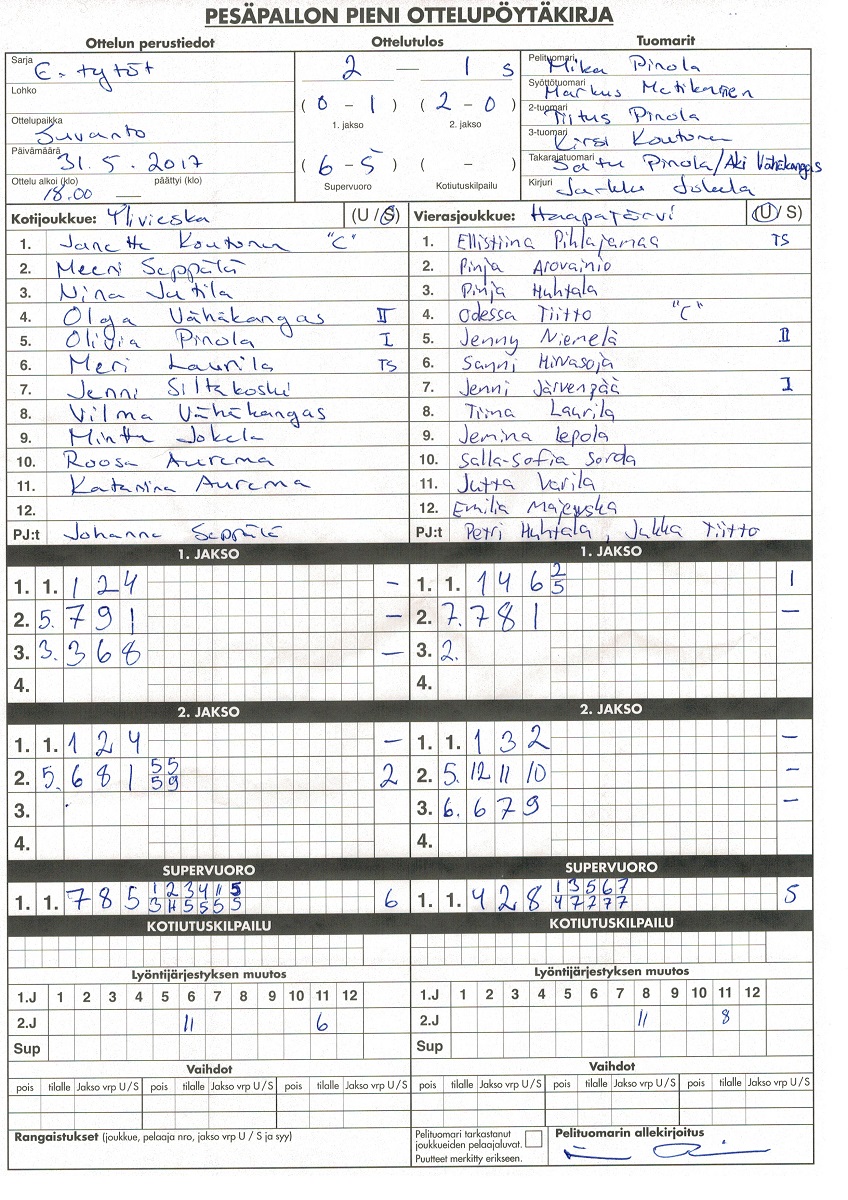 PESÄPALLON PIENI OTTELUPÖYTÄKIRJA
Ottelun perustiedot
Sarja E-tytöt
Lohko
Ottelupaikka Suvanto
Päivämäärä 31.5.2017
Ottelu alkoi (klo) päättyi (klo)
18.00 —
Ottelutulos
2 — 1 s
( 0 - 1 ) ( 2 - 0 )
1. jakso 2. jakso
( 6 - 5 ) ( - )
Supervuoro Kotiutuskilpailu
Tuomarit
Pelituomari Mika Pinola
Syöttötuomari Markus Matikainen
2-tuomari Tiitus Pinola
3-tuomari Kirsi Koutonen
Takarajatuomari Satu Pinola/Aki Vähäkangas
Kirjuri Jarkko Jokela
Kotijoukkue: Ylivieska (U/S)
1. Janette Koutonen "C"
2. Meeri Seppälä
3. Nina Jutila
4. Olga Vähäkangas II
5. Olivia Pinola I
6. Meri Laurila TS
7. Jenni Siltakoski
8. Vilma Vähäkangas
9. Minttu Jokela
10. Roosa Aurema
11. Katariina Aurema
12.
PJ:t Johanna Seppälä
Vierasjoukkue: Haapajärvi (U/S)
1. Ellistiina Pihlajamaa TS
2. Pinja Arovainio
3. Pinja Huhtala
4. Odessa Tiitto "C"
5. Jenny Niemelä II
6. Sanni Hirvasoja
7. Jenni Järvenpää I
8. Tiina Laurila
9. Jemina Lepola
10. Salla-Sofia Sorda
11. Jutta Varila
12. Emilia Majewska
PJ:t Petri Huhtala, Jukka Tiitto
1. JAKSO
1. 1. 1 2 4 -
2. 5. 7 9 1 -
3. 3. 3 6 8 -
4.
1. JAKSO
1. 1. 1 4 6 2/5 1
2. 7. 7 8 1 -
3. 2.
4.
2. JAKSO
1. 1. 1 2 4 -
2. 5. 6 8 1 55/59 2
3.
4.
2. JAKSO
1. 1. 1 3 2 -
2. 5. 12 11 10 -
3. 6. 6 7 9 -
4.
SUPERVUORO
1 2 3 4 11 5
1. 1. 7 8 5 6
3 11 5 5 5 5
SUPERVUORO
1 3 5 6 7
1. 1. 4 2 8 5
4 7 7 7 7
KOTIUTUSKILPAILU
KOTIUTUSKILPAILU
Lyöntijärjestyksen muutos
1.J 1 2 3 4 5 6 7 8 9 10 11 12
2.J 11 6
Sup
Lyöntijärjestyksen muutos
1.J 1 2 3 4 5 6 7 8 9 10 11 12
2.J 11 8
Sup
Vaihdot
pois tilalle Jakso vrp U/S pois tilalle Jakso vrp U/S pois tilalle Jakso vrp U/S
Vaihdot
pois tilalle Jakso vrp U/S pois tilalle Jakso vrp U/S pois tilalle Jakso vrp U/S
Rangaistukset (joukkue, pelaaja nro, jakso vrp U / S ja syy)
Pelituomari tarkastanut
joukkueiden pelaajaluvat.
Puutteet merkitty erikseen.
Pelituomarin allekirjoitus